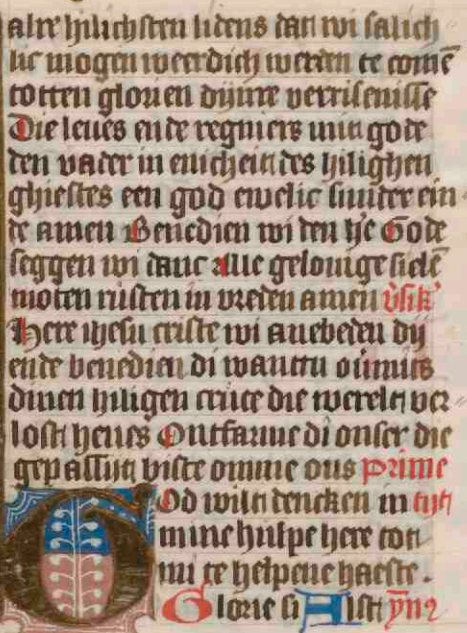 alre hilichsten lidens dat wi salich
lic mogen weerdich werden te comē
totten glorien dijnre verrisenisse
Die leues ende regniers mit gode
den vader in enicheit des hilighen
ghiestes een god ewelic sunder ein
de amen Benedien wi den h'e Gode
seggen wi danc Alle gelouige sielē
moten rusten in vreden amen
Here ihesu criste wi anebeden dy
ende benedien di wanttu ouermits
dinen hiligen cruce die werelt ver
lost heues Ontfarme di onser die
gepassijt biste omme ons prime
God wilt dencken in tijt
mine hulpe here tot
mi te helpene haeste.
Glorie si Alst ymp